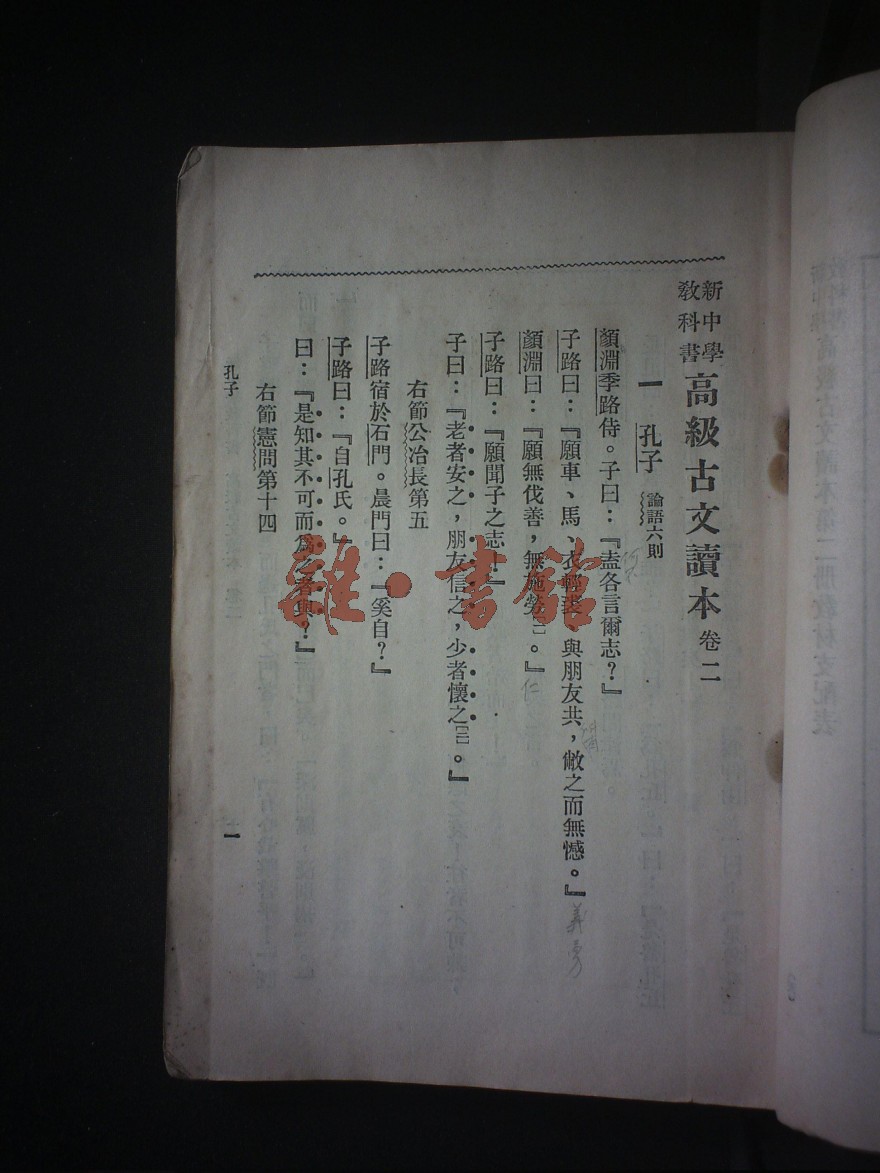 新中學
教科書
高級古文讀本 卷二
一 孔子 論語六則
顏淵季路侍。子曰：『盍各言爾志？』
子路曰：『願車、馬、衣輕裘、與朋友共，敝之而無憾。』
顏淵曰：『願無伐善，無施勞[一]。』
子路曰：『願聞子之志！』
子曰：『老者安之，朋友信之，少者懷之[二]。』
右節公冶長第五
子路宿於石門。晨門曰：『奚自？』
子路曰：『自孔氏。』
曰：『是知其不可而爲之者與？』
右節憲問第十四
孔子
一
雜·書館
仁
義勇